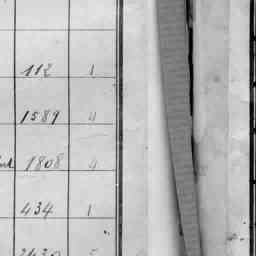 112 1
1589 4
1808 4
434 1